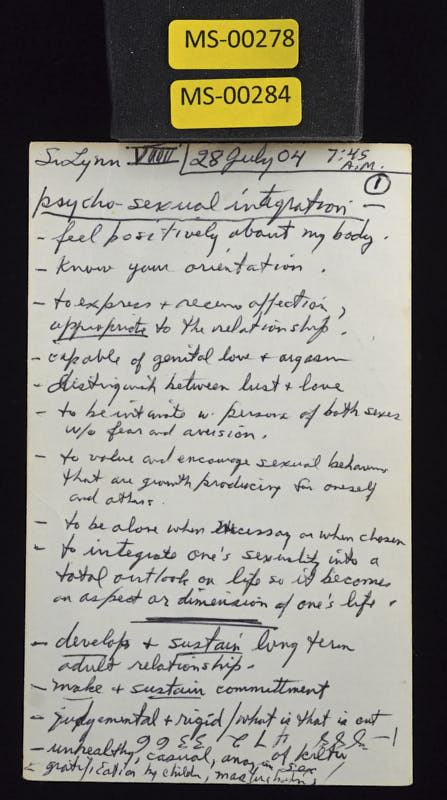 MS-00278
MS-00284
Sr Lynn VIII 28 July 04 7:45 A.M.
1
psycho-sexual integration —
- feel positively about my body.
- Know your orientation.
- to express + receive affection,
appropriate to the relationship.
- capable of genital love + orgasm
- distinguish between lust + love
- to be intimate w. persons of both sexes
w/o fear and aversion.
- to value and encourage sexual behaviors
that are growth producing for oneself
and others.
- to be alone when necessary or when chosen
- to integrate one's sexuality into a
total outlook on life so it becomes
an aspect or dimension of one's life.
- develop + sustain long term
adult relationship.
- make + sustain committment
- judgemental + rigid / what is that is out
- unhealthy, casual, sex
- gratification by children,